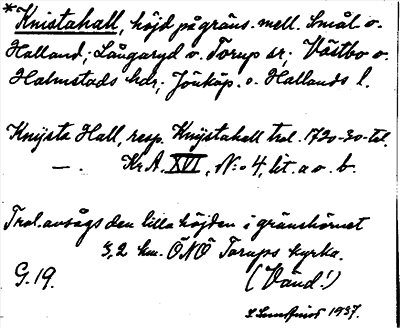 *Knistahall, höjd på gräns. mell. Smål. o.
Halland; Långaryd o. Torup sr; Västbo o.
Halmstads hdr; Jönköp. o. Hallands l.
Knÿsta Hall, resp. Knÿstahall trol. 1720-30-tal.
— . Kr.A. XVI, N:o 4, lit. a o. b.
Trol. avsågs den lilla höjden i gränshörnet
3,2 km. ÖNÖ Torups kyrka.
G. 19. (Vänd!)
1937.